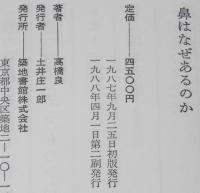 鼻はなぜあるのか
定価——四五〇〇円
一九八七年九月二五日初版発行
一九八八年四月一日第二刷発行
著者——高橋良
発行者——土井庄一郎
発行所——築地書館株式会社
東京都中央区築地二—一〇—一